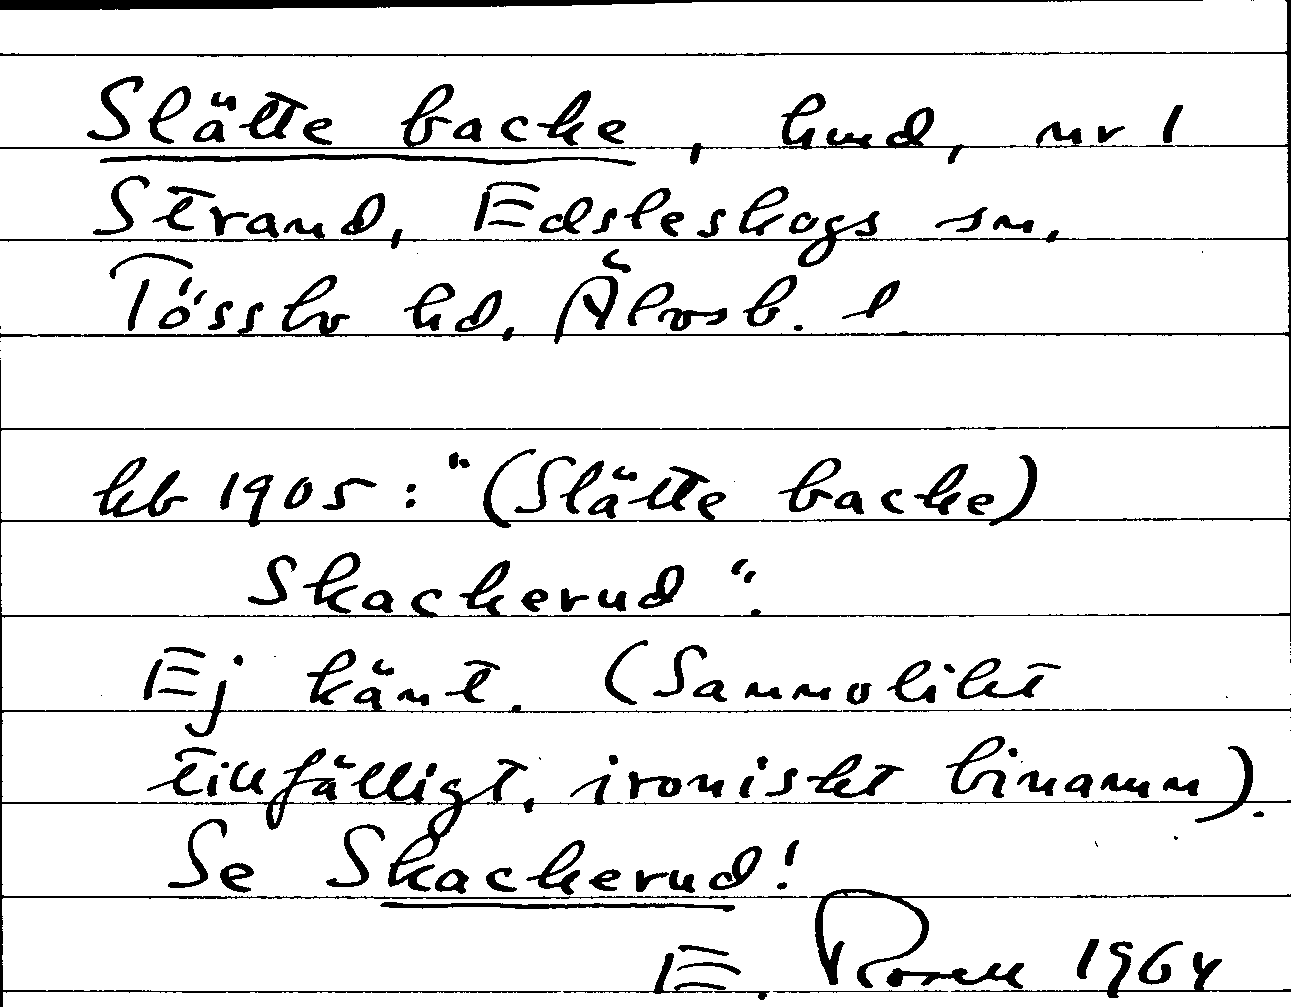 Slätte backe, hmd, nr 1
Strand, Edsleskogs sn,
Tössbo hd, Älvsb. l.
kb 1905: "(Slätte backe)
Skackerud".
Ej känt. (Sannolikt
tillfälligt, ironiskt binamn).
Se Skackerud!
E. Rosell 1964